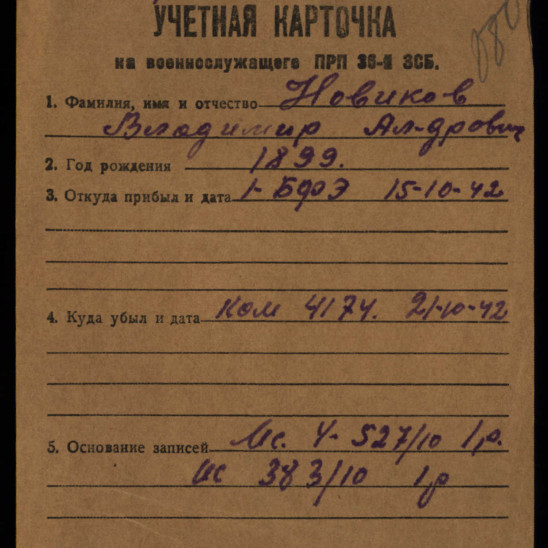 УЧЕТНАЯ КАРТОЧКА
на военнослужащего ПРП 36-й ЗСБ.
1. Фамилия, имя и отчество Новиков
Владимир Ал-дрович
2. Год рождения 1899.
3. Откуда прибыл и дата 1-БФЭ 15-10-42
4. Куда убыл и дата ком 4174. 21-10-42
5. Основание записей Ис. 4-527/10 1р.
ис 383/10 1р